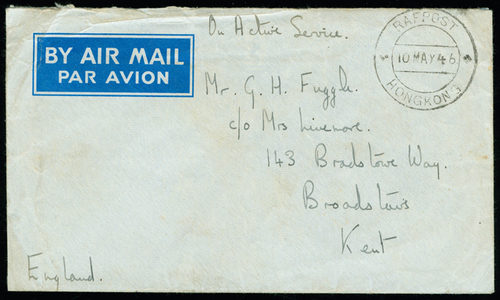 On Active Service.
RAFPOST
10 MAY 46
HONGKONG
BY AIR MAIL
PAR AVION
Mr. G. H. Fuggle.
c/o Mrs Livemore.
143 Bradstowe Way.
Broadstairs
Kent
England.